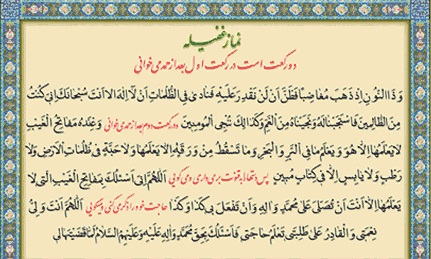 نماز غفیله
دو رکعت است در رکعت اول بعد از حمد می خوانی
وَ ذَا النُّونِ اِذْ ذَهَبَ مُغاضِباً فَظَنَّ اَنْ لَنْ نَقْدِرَ عَلَیْهِ فَنادی فِی الظُّلُماتِ اَنْ لا اِلهَ اِلاّ اَنْتَ سُبْحانَکَ اِنّی کُنْتُ
مِنَ الظّالِمینَ فَاسْتَجَبْنا لَهُ وَ نَجَّیْناهُ مِنَ الْغَمِّ وَ کَذلِکَ نُنْجِی الْمُؤمِنینَ در رکعت دوم بعد از حمد می خوانی وَ عِنْدَهُ مَفاتِحُ الْغَیْبِ
لا یَعْلَمُها اِلاّ هُوَ وَ یَعْلَمُ ما فِی الْبَرِّ وَ الْبَحْرِ وَ ما تَسْقُطُ مِنْ وَرَقَةٍ اِلاّ یَعْلَمُها وَ لا حَبَّةٍ فی ظُلُماتِ الْاَرْضِ وَ لا
رَطْبٍ وَ لا یابِسٍ اِلاّ فی کِتابٍ مُبینٍ پس دستها را به قنوت برمی داری و می گویی اَللّهُمَّ اِنّی اَسْئَلُکَ بِمَفاتِحِ الْغَیْبِ الَّتی لا
یَعْلَمُها اِلاّ اَنْتَ اَنْ تُصَلِّیَ عَلی مُحَمَّدٍ وَ الِهِ وَ اَنْ تَفْعَلَ بی کَذا وَ کَذا حاجت خود را ذکر می کنی و می گویی اَللّهُمَّ اَنْتَ وَلِیُّ
نِعْمَتی وَ الْقادِرُ عَلی طَلِبَتی تَعْلَمُ حاجَتی فَاَسْئَلُکَ بِحَقِّ مُحَمَّدٍ وَ الِهِ عَلَیْهِ وَ عَلَیْهِمُ السَّلامُ لَمّا قَضَیْتَها لی